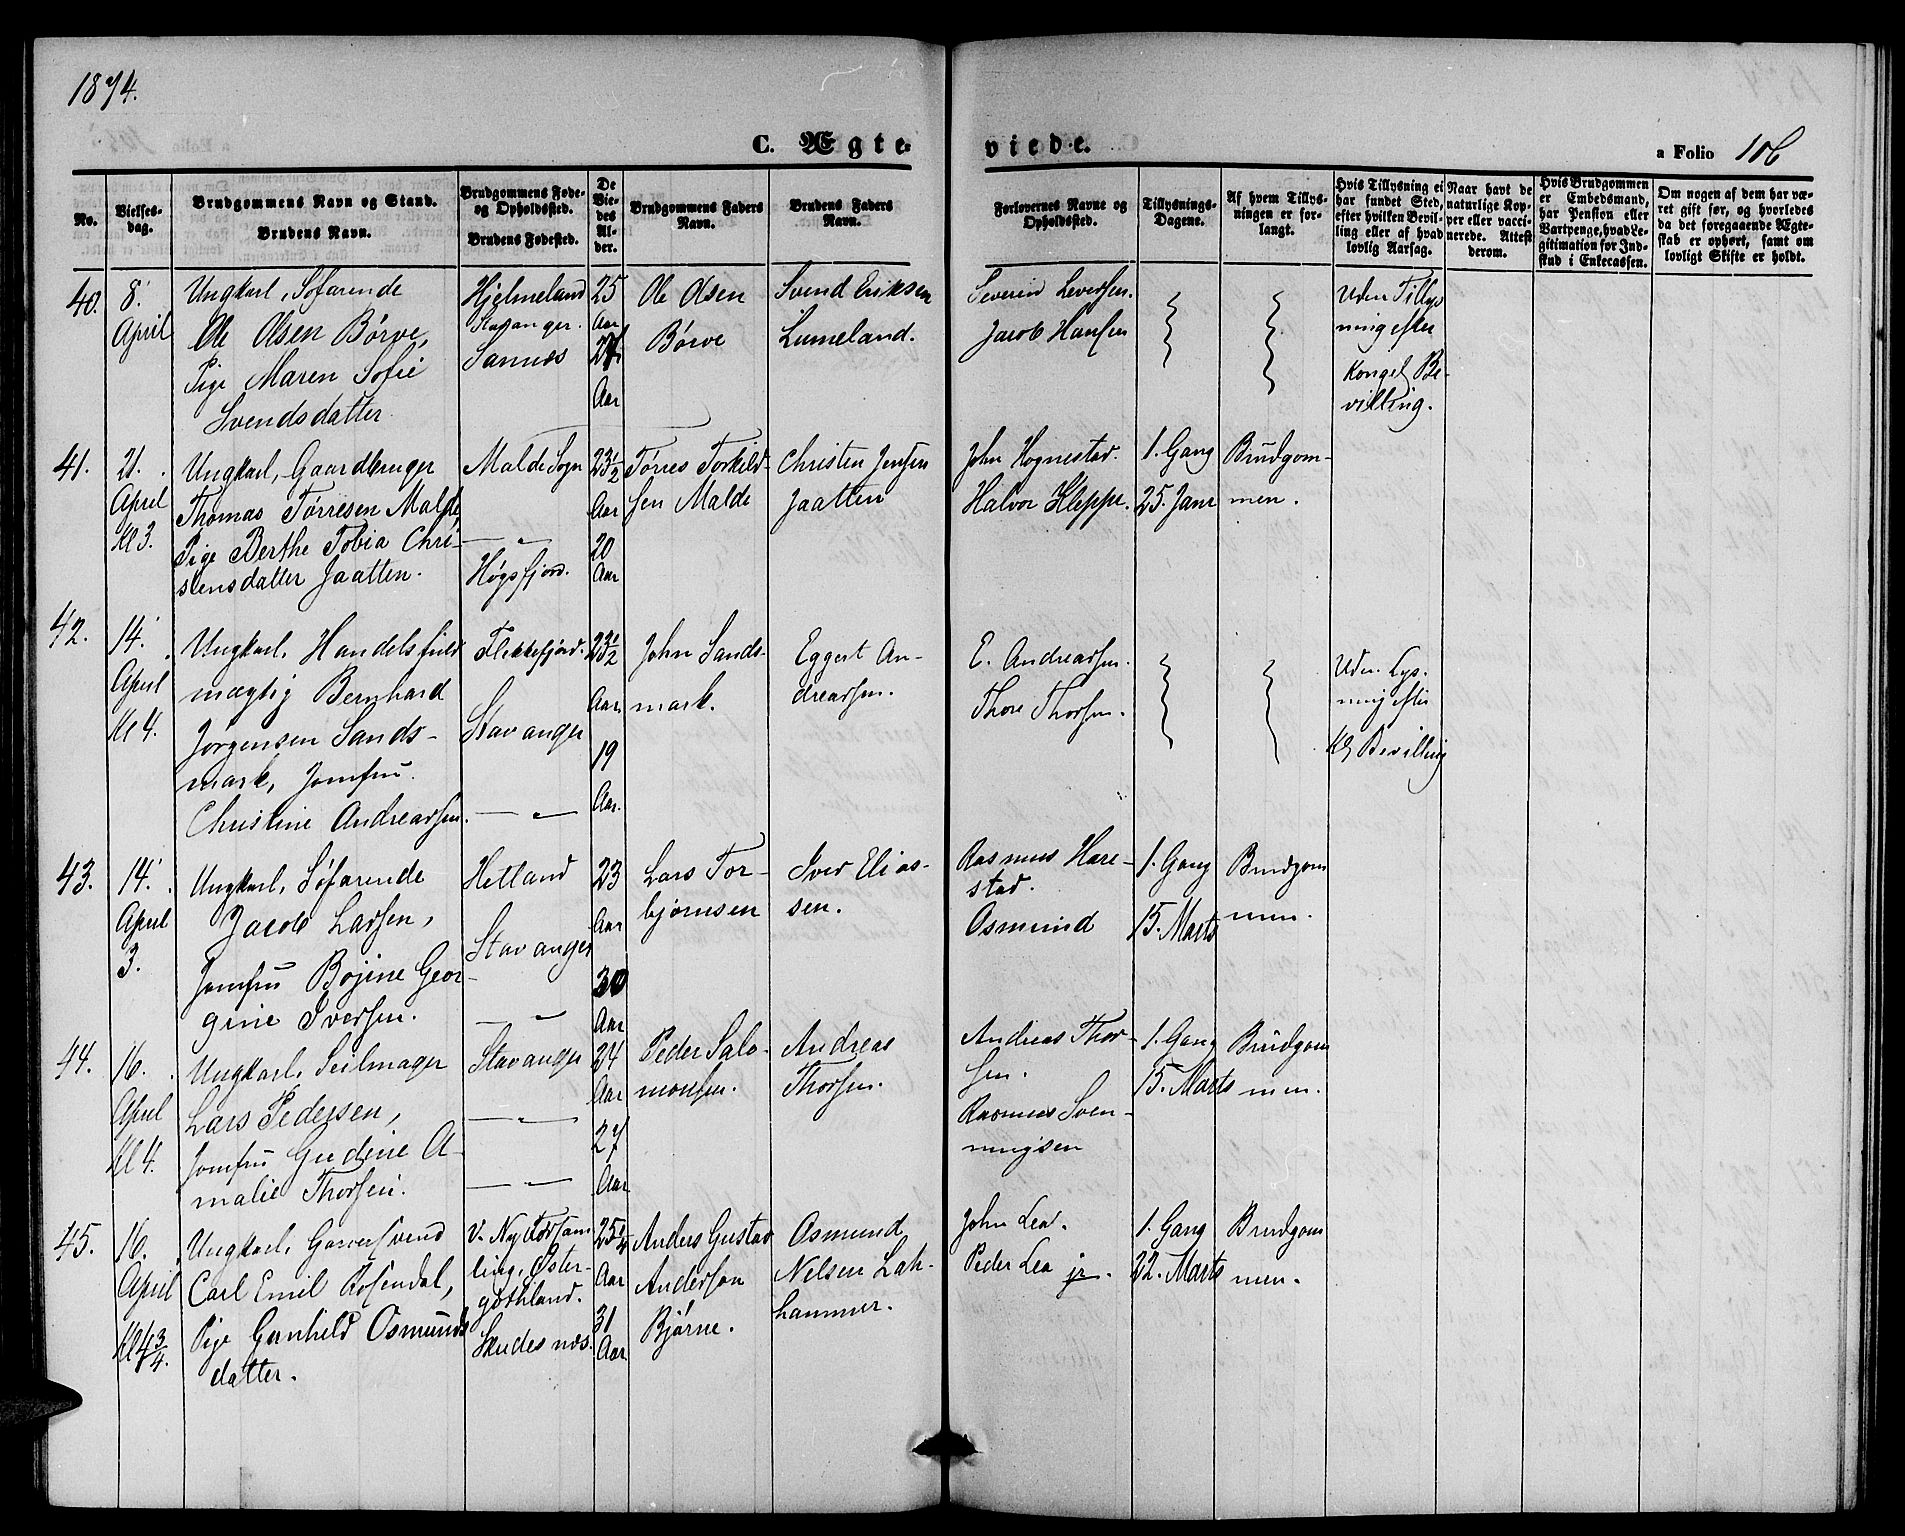 1874.
C. Ægte-
viede.
a Folio 106
No.
Vielses-
dag.
Brudgommens Navn og Stand.
Brudens Navn.
Brudgommens Føde-
og Opholdssted.
Brudens Fødested.
De
Vie-
des
Al-
der.
Brudgommens Faders
Navn.
Brudens Faders
Navn.
Forlovernes Navne og
Opholdssted.
Tillysnings-
Dagene.
Af hvem Tillys-
ningen er for-
langt.
Hvis Tillysning ei
har fundet Sted,
efter hvilken Bevil-
ling eller af hvad
lovlig Aarsag.
Naar havt de
naturlige Kop-
per eller vacci-
nerede. Attest
derom.
Hvis Brudgommen
er Embedsmand,
har Pension eller
Vartpenge, hvad Le-
gitimation for Ind-
skud i Enkecassen.
Om nogen af dem har væ-
ret gift før, og hvorledes
da det foregaaende Ægte-
skab er ophørt, samt om
lovligt Skifte er holdt.
40.
8.
April
Ungkarl, Søfarende
Ole Olsen Børve,
Pige Maren Sofie
Svendsdatter
Hjelmeland
Stavanger.
Sannes
25
Aar
Aar
Ole Olsen
Børve
Svend Eriksen
Lumeland.
Severin Leversen.
Jacob Hansen
Uden Tillys
ning efter
Kongel Be-
villing.
41.
21.
April
Kl 3.
Ungkarl, Gaardbruger
Thomas Tørresen Malde
Pige Berthe Tobia Chri-
stensdatter Jaatten.
Malde Sogn
— " —
Høgsfjord.
23 1/2
Aar
20
Aar
Tørres Torkild-
sen Malde
Christen Jensen
Jaatten
John Hognestad.
Halvor Kleppe.
1. Gang
25. Janr
Brudgom-
men.
42.
14.
April
Kl 4.
Ungkarl, Handelsfuld
mægtig Bernhard
Jørgensen Sands-
mark, Jomfru
Christine Andreassen.
Flekkefjord.
Stavanger
— " —
23 1/2
Aar
19
Aar.
John Sands-
mark.
Eggert An-
dreassen.
E. Andreassen.
Thore Thorsen.
Uden Lys-
ning efter
Kg Bevilling
43.
14.
April
3.
Ungkarl, Søfarende
Jacob Larsen,
Jomfru Bojine Geor-
gine Iversen.
Hetland
Stavanger
— " —
23
Aar
30
Aar
Lars Tor-
bjørnsen
Iver Elias-
sen.
Rasmus Hare-
stad.
Osmund
1. Gang
15. Marts
Brudgom
men.
44.
16.
April
Kl 4.
Ungkarl, Seilmager
Lars Pedersen,
Jomfru Gudine A-
malie Thorsen.
Stavanger
— " —
— " —
24
Aar
27
Aar
Peder Salo-
monsen.
Andreas
Thorsen.
Andreas Thor-
sen.
Rasmus Sven-
ningsen
1. Gang
15. Marts
Brudgom
men.
45.
16.
April
Kl 4 3/4.
Ungkarl, Garversvend
Carl Emil Rosendal,
Pige Gunhild Osmunds
datter.
V. Ny Forsam
ling, Øster-
gøthland.
Skudesnes.
25 1/4
Aar
31
Aar
Anders Gustav
Anderson
Bjørne.
Osmund
Nelsen Lah-
hammer.
John Lea.
Peder Lea jr.
1. Gang
22. Marts
Brudgom
men.